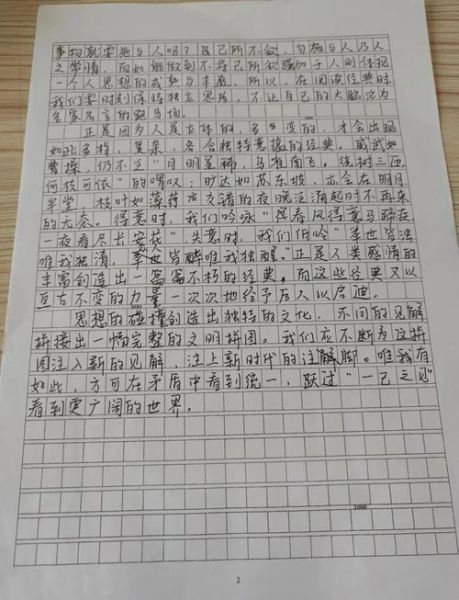 事物就要施与人吗？己所不欲，勿施与人乃人
之常情，而如能做到不将己所欲强加于人则体现
一个人思想的成熟与丰盈。所以，在阅读经典时
我们要时刻保持独立思考，不让自己的大脑沦为
名家名言的跑马场。
正是因为人是立体的，多变的，才会出现
如此多样，复杂，各含独特意蕴的经典。威武如
曹操，仍不乏“月明星稀，乌鹊南飞。绕树三匝
何枝可依”的喟叹；旷达如苏东坡，亦会在明月
半堂，枝叶如藻荇交错的夜晚泛起时不再来
的无奈。得意时，我们吟咏“得春风得意马蹄疾
一夜看尽长安花”失意时，我们伯吟“举世皆浊
唯我独清，举世皆醉唯我独醒。”正是人类感情的
丰富创造出一篇篇不朽的经典。而这些经典又以
亘古不变的力量一次次地给予后人以启迪。
思想的碰撞创造出独特的文化，不同的见解
拼接出一幅完整的文明拼图。我们应不断为这拼
图注入新的见解，注上新时代的注解脚。唯我有
如此，方可在矛盾中看到统一，跃过“一己之见”
看到更广阔的世界。
1000
2